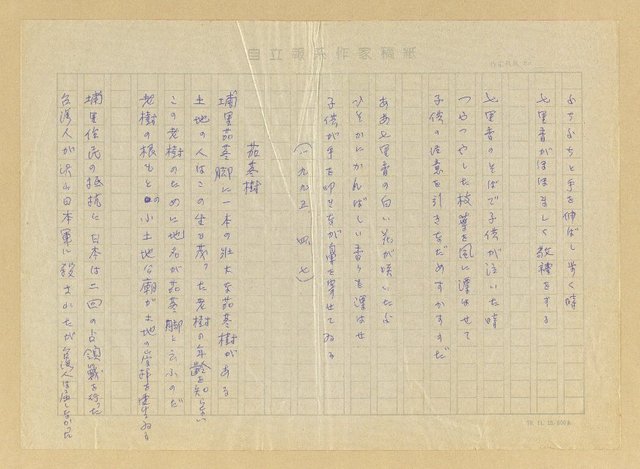 自立報系作家稿紙
よちよちと手を伸ばし歩く時
七里香がほほましく教襀をする
七里香のそばで子供が泣いた時
つやつやした枝葉を風に漂はせて
子供の注意を引きなだめすかすのだ
ああ七里香の白い花が咲いたよ
ひそかにかんばしい香りを漂はせ
子供が手を叩きながら鼻を寄せてゐる
(一九九五 四、七)
茄苳樹
埔里茄苳脚に一本の壮大な茄苳樹がある
土地の人はこの生ひ茂った老樹の年齢を知らない
この老樹のために地名が茄苳脚と云ふのだ
老樹の根もとの小土地公廟が土地の
埔里住民の抵抗に日本は二回の占領戦を行った
台湾人が沢山日本軍に殺されたが台湾人は屈しなかった